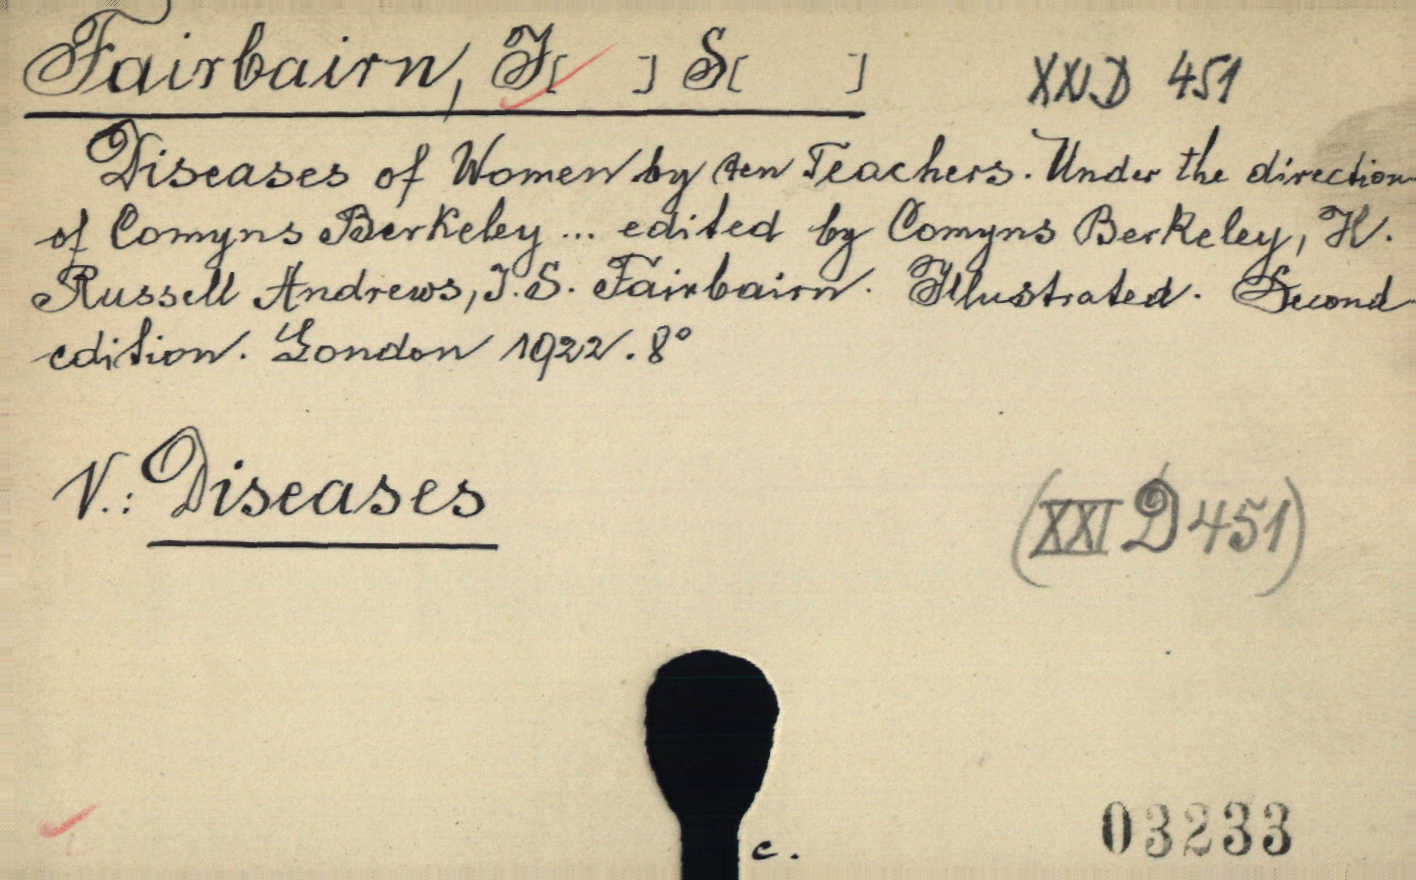 Fairbairn, J[ ] S[ ] XXI.D 451
Diseases of Women by ten Teachers. Under the direction
of Comyns Berkeley ... edited by Comyns Berkeley, H.
Russell Andrews, J. S. Fairbairn. Illustrated. Second
edition. London 1922. 8°
V.: Diseases
(XXI D 451)
c.
03233